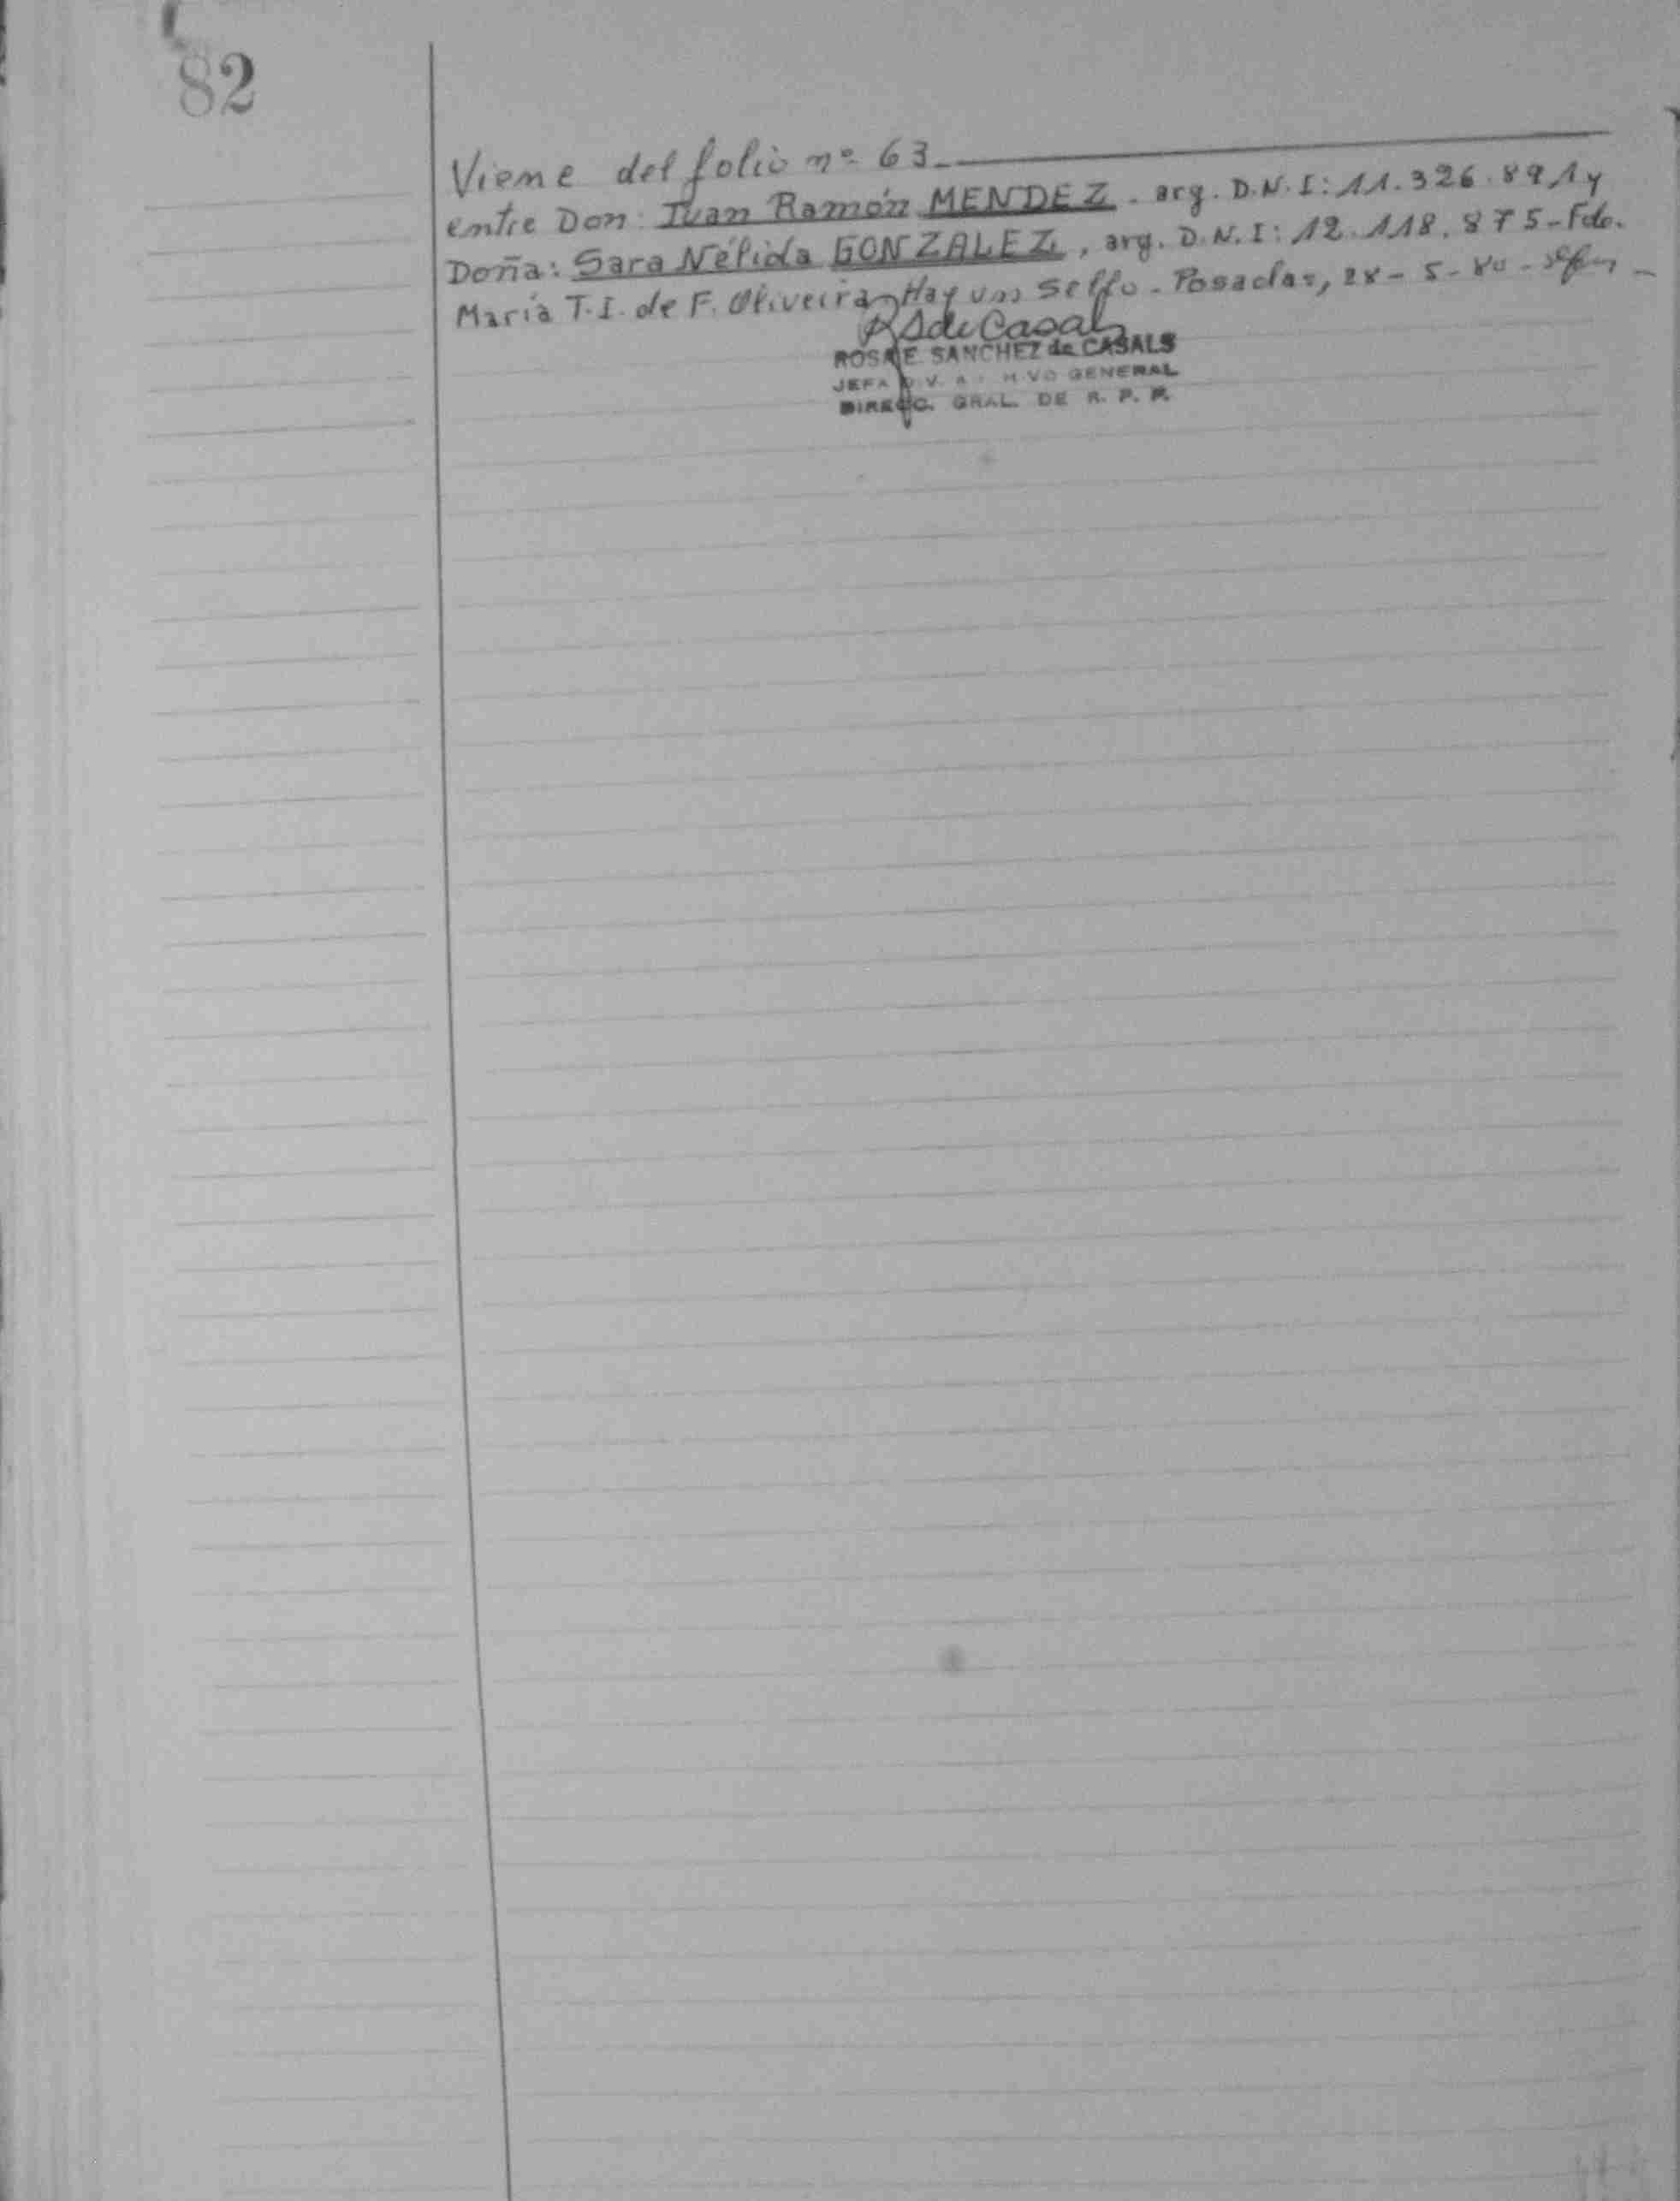 82
Viene del folio nº 63.
entre Don: Juan Ramón MENDEZ - arg. D.N.I: 11.326.891 y
Doña: Sara Nélida GONZALEZ, arg. D.N.I: 12.118.875 - Fdo.
María T. I. de F. Oliveira - Hay un sello - Posadas, 28 - 5 - 80 -
RS de Casals
ROSA E. SANCHEZ de CASALS
JEFA GENERAL
DIREC. GRAL. DE R. P. P.